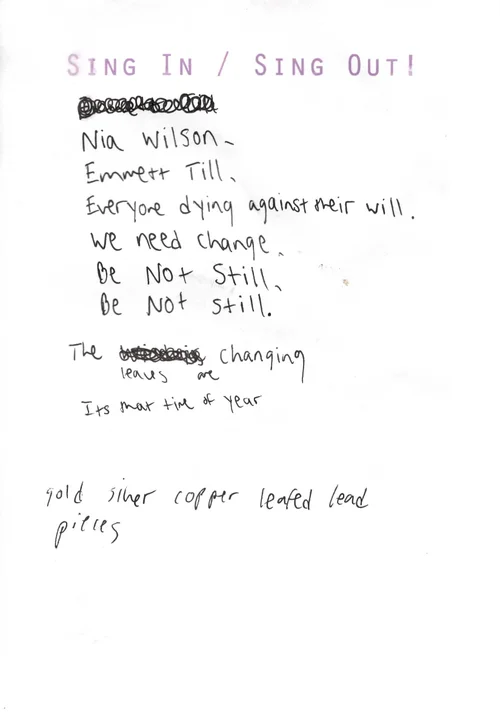 SING IN / SING OUT!
Nia Wilson.
Emmett Till,
Everyone dying against their will.
We need change.
Be Not Still,
Be Not Still.
The changing
leaves are
Its that time of year
gold silver copper leafed lead
pieces